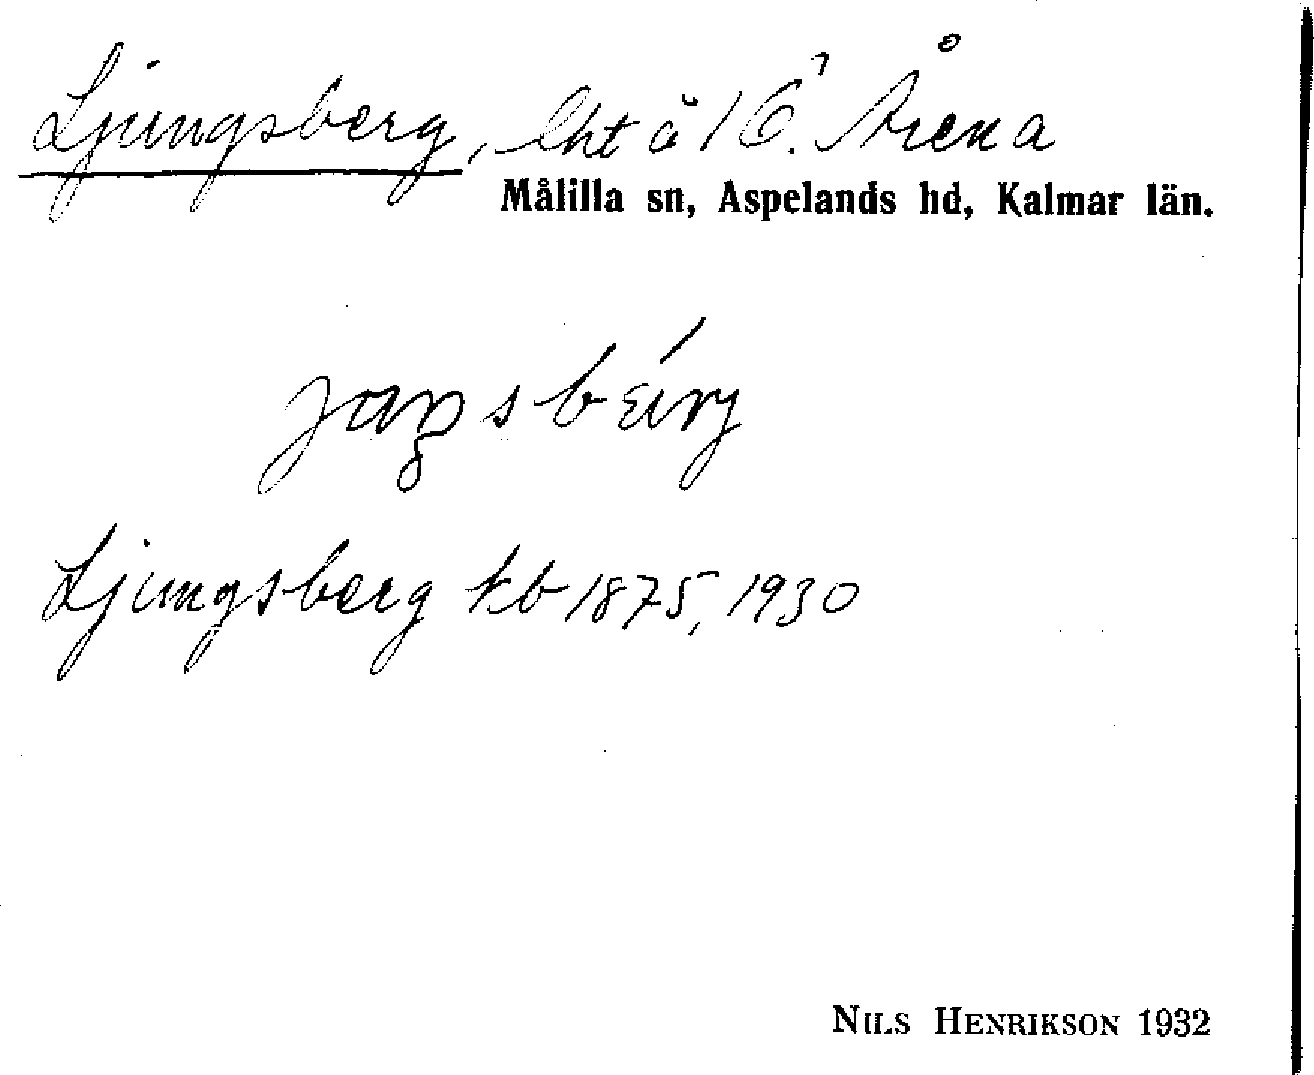 Ljungsberg, lht å 1 6¹ Årena
Målilla sn, Aspelands hd, Kalmar län.
Ljungsberg kb 1875, 1930
NILS HENRIKSON 1932